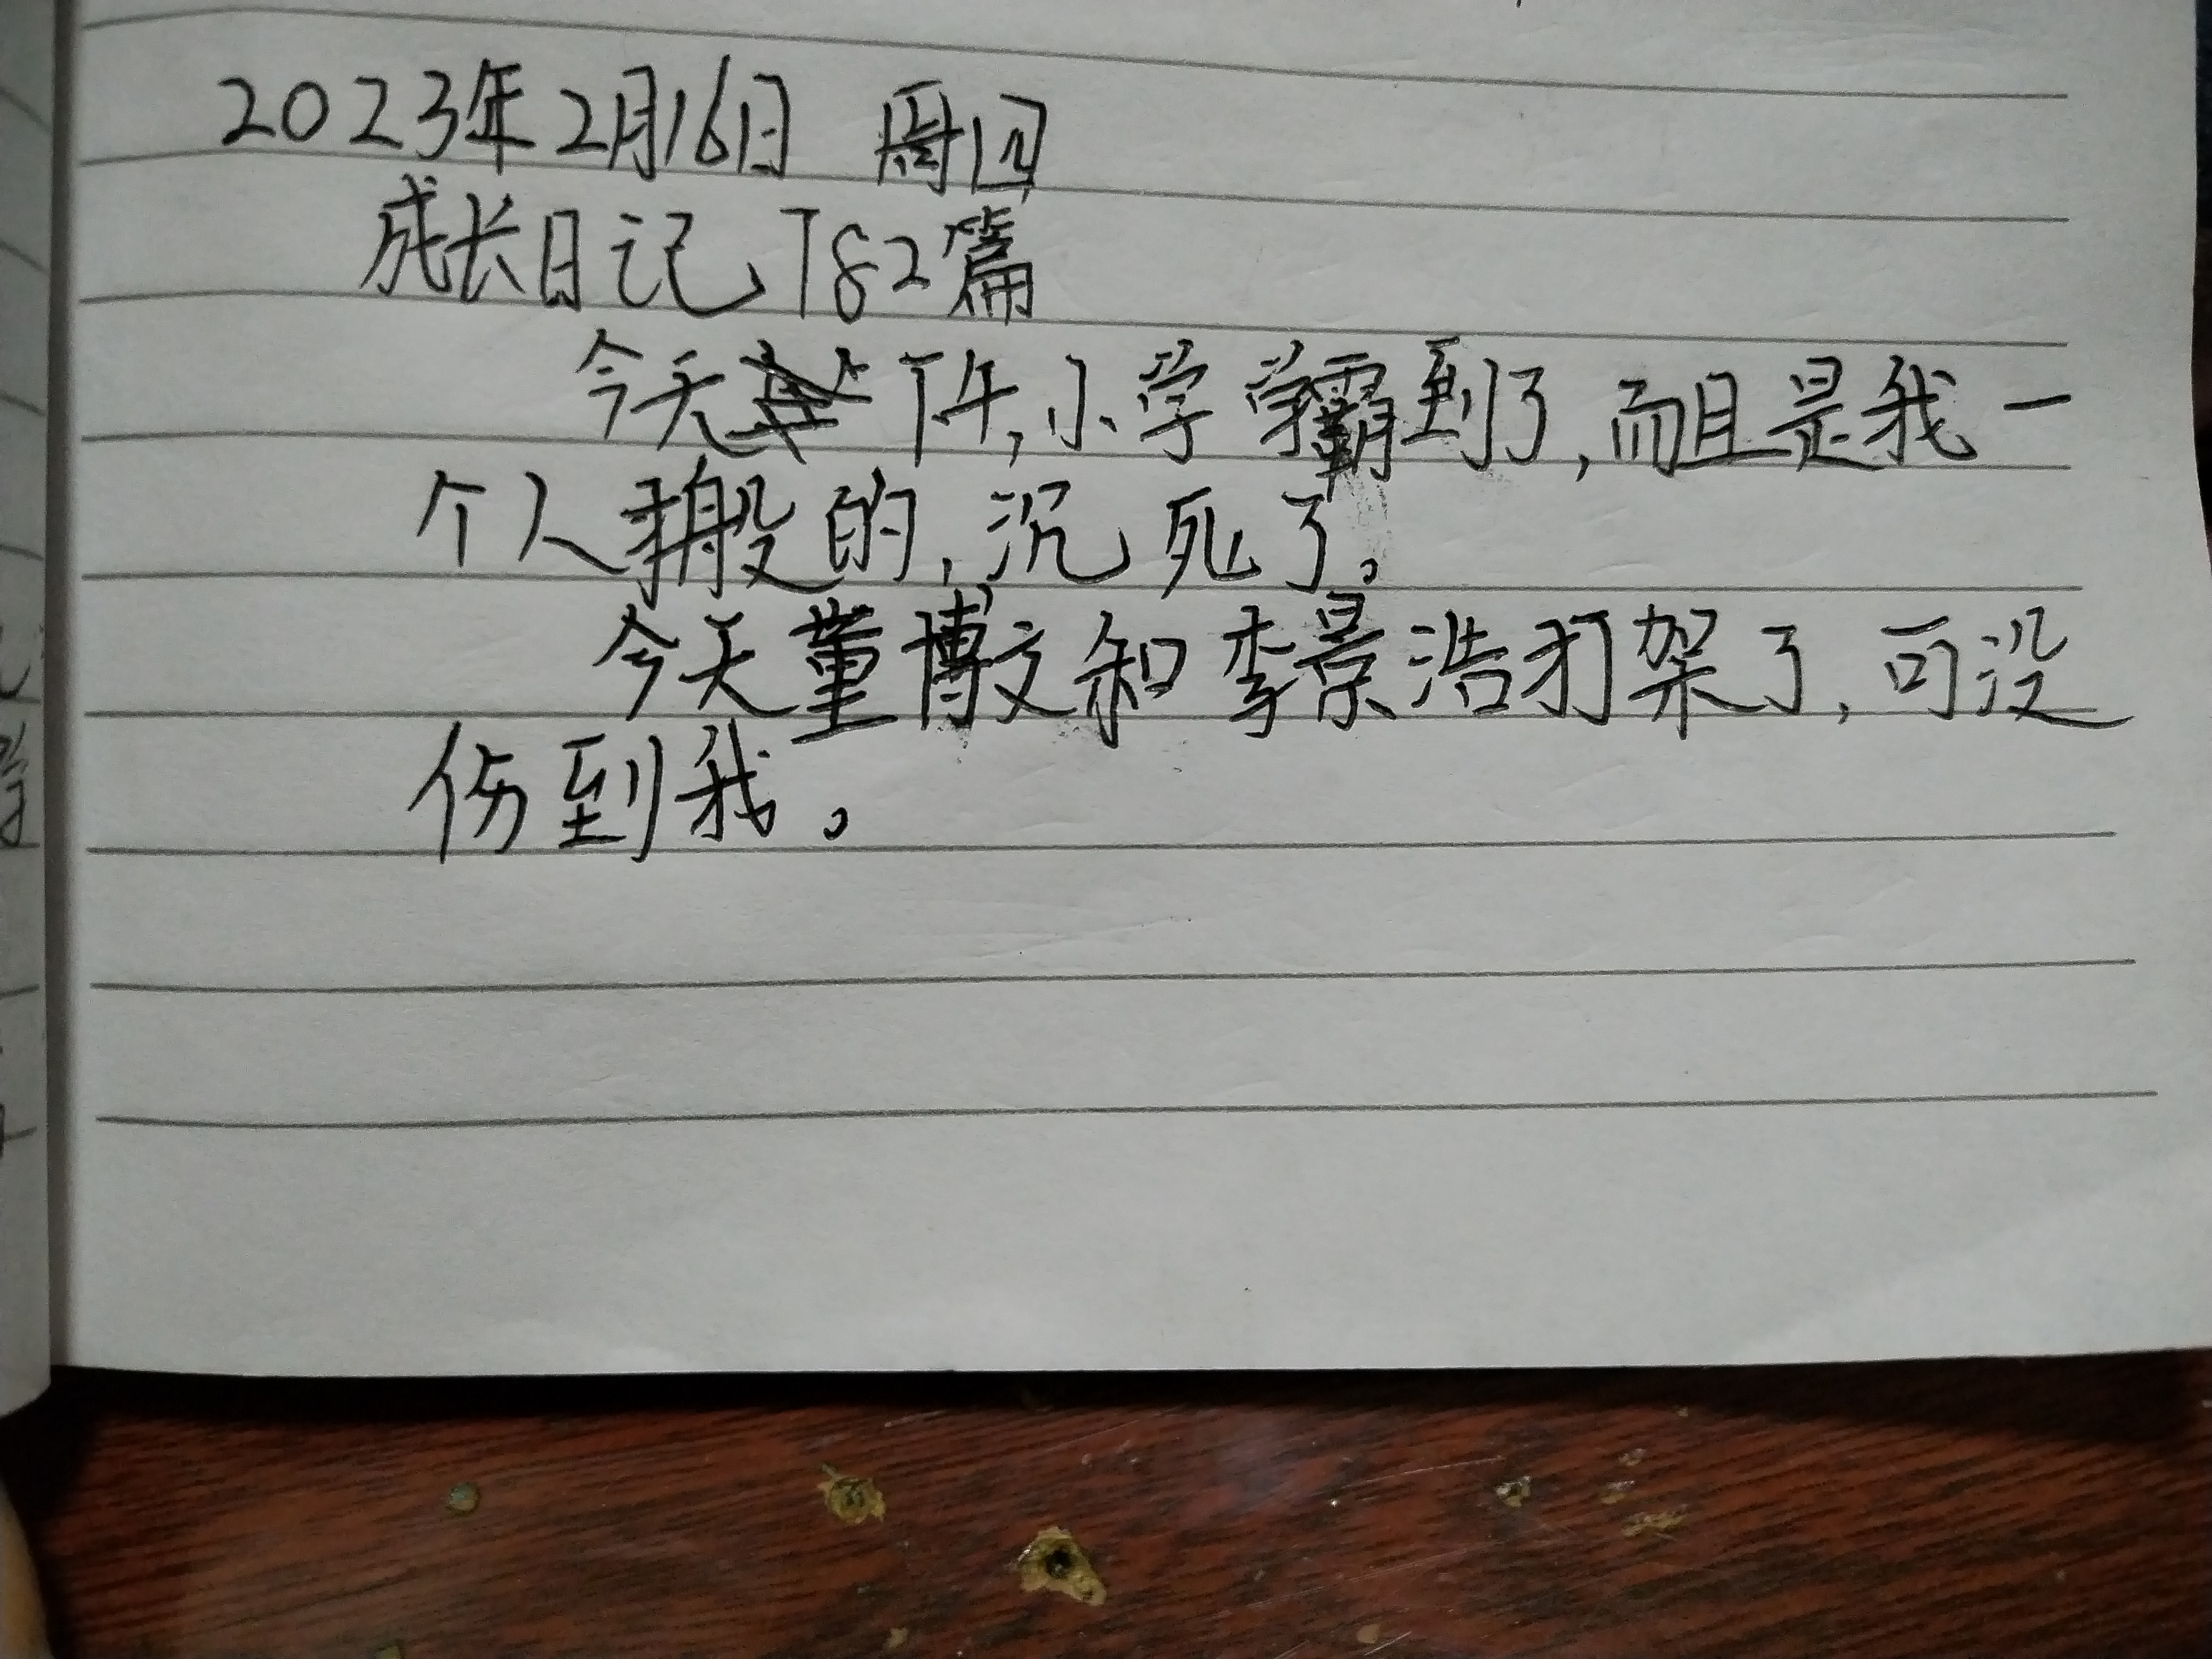 2023年2月16日 周四
成长日记、T82篇
今天下午,小学学霸到了,而且是我一
个人搬的,沉死了。
今天董博文和李景浩打架了,可没
伤到我。